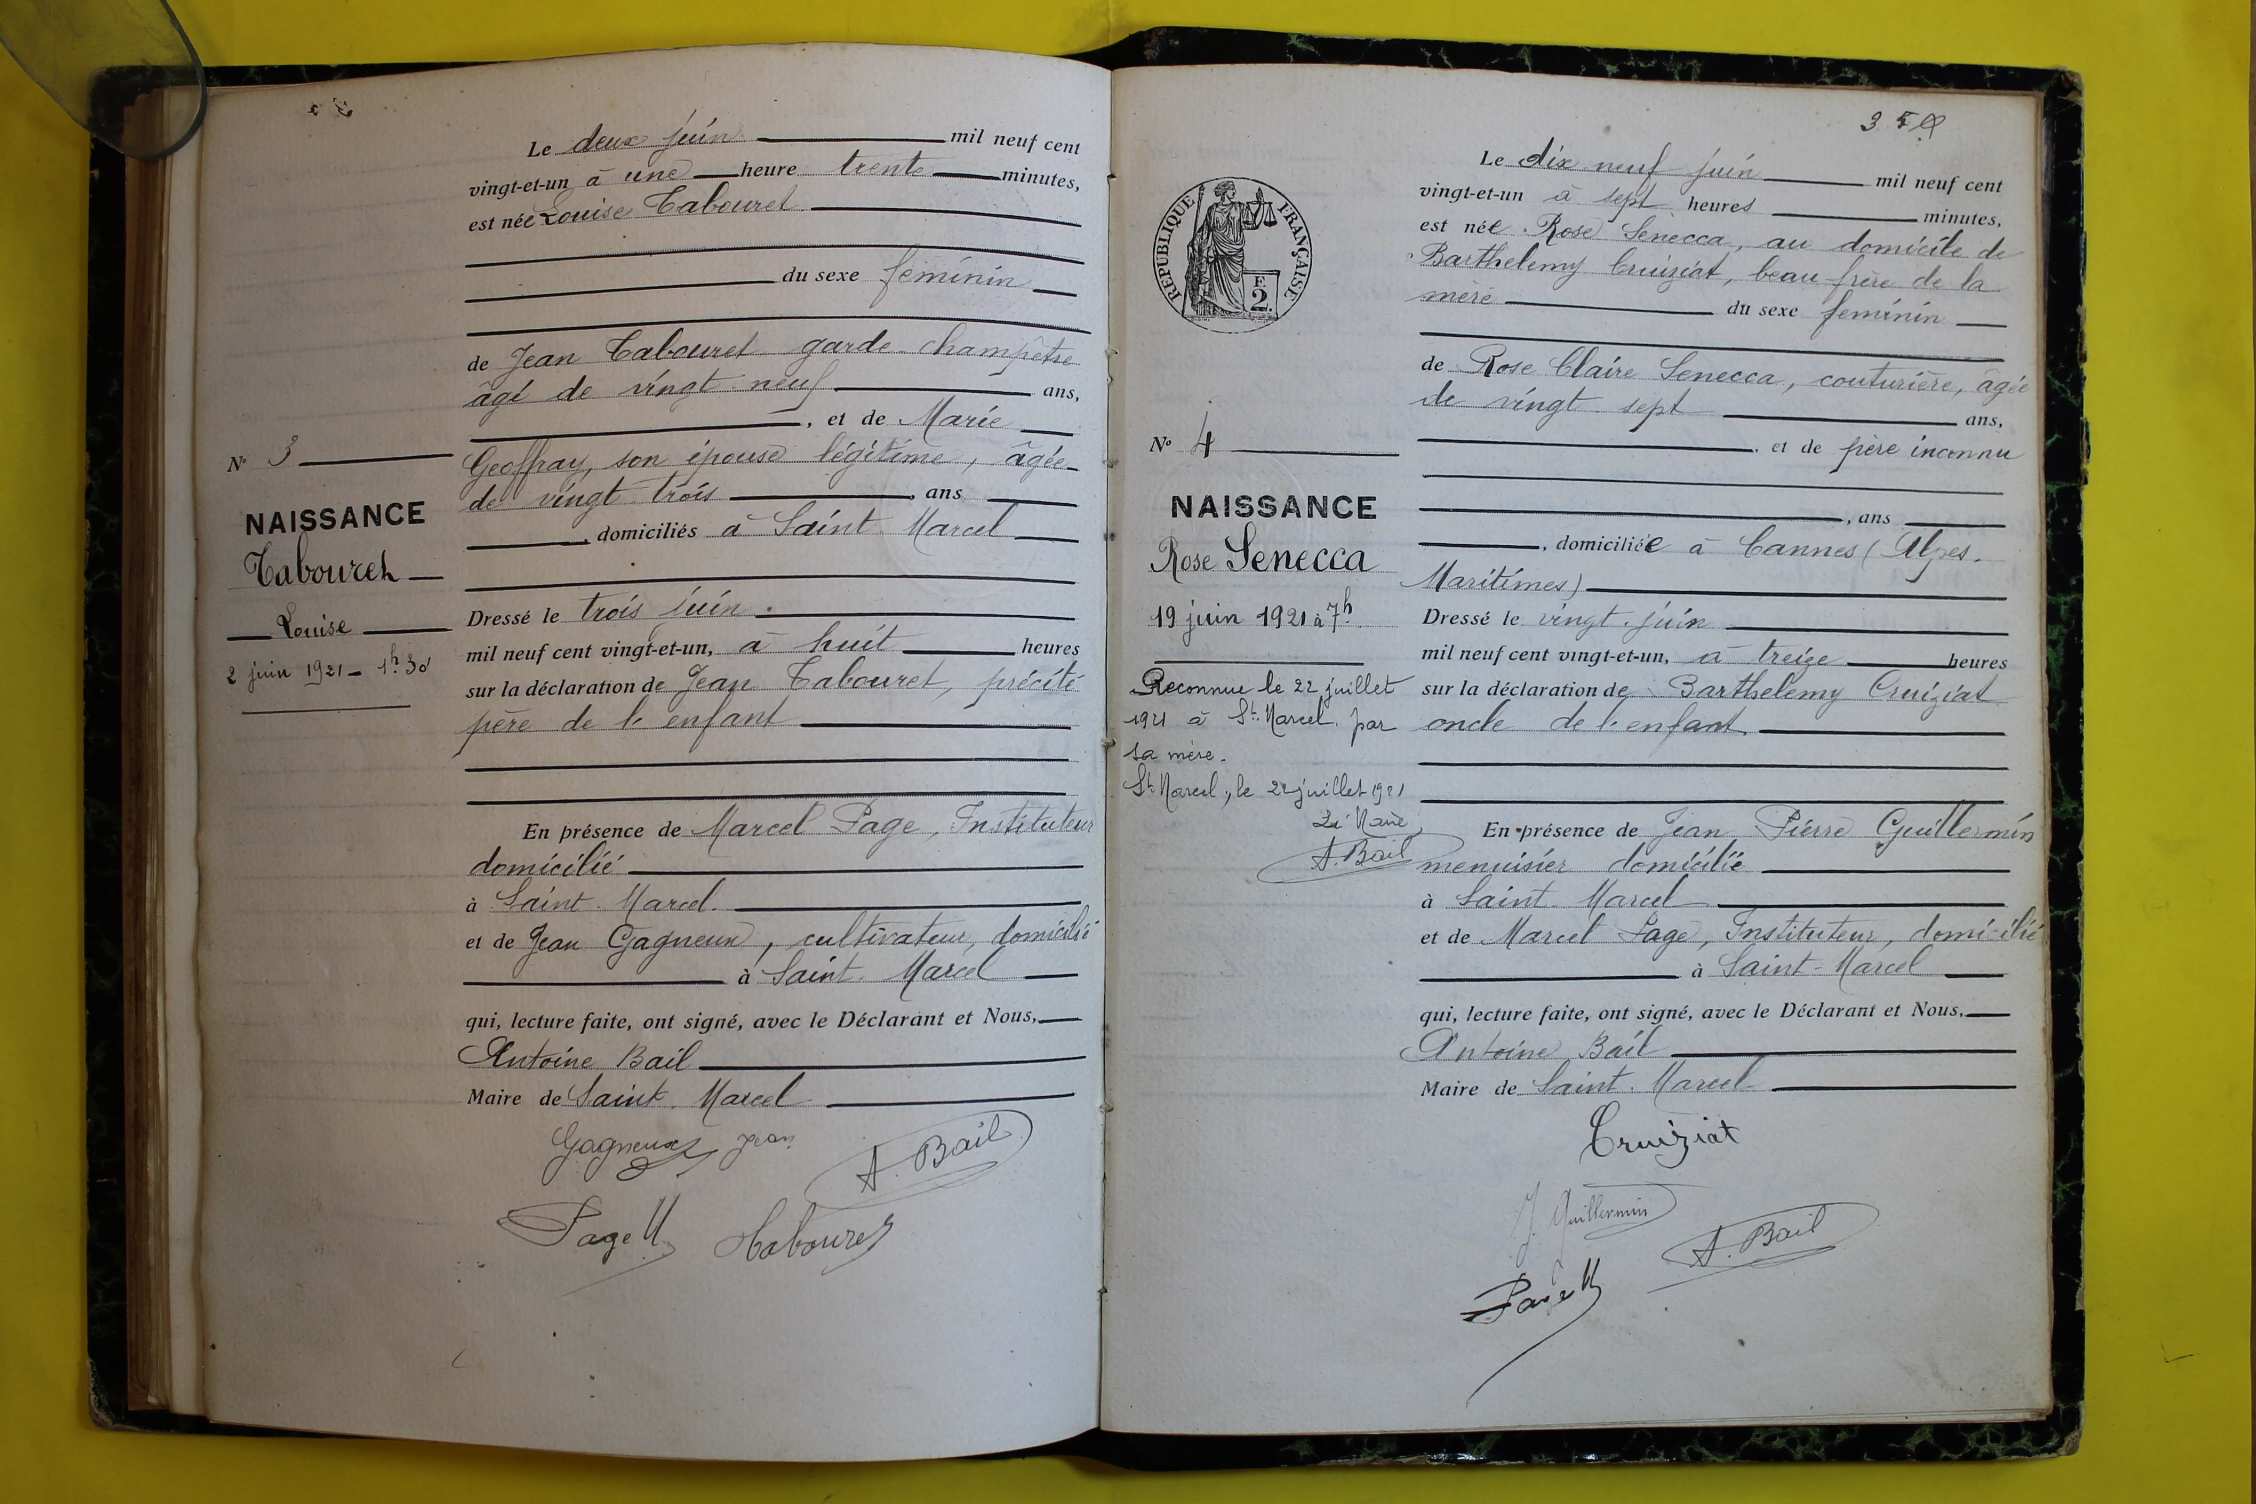 Le deux juin mil neuf cent
vingt-et-un à une heure trente minutes,
est née Louise Tabouret
du sexe féminin
de Jean Tabouret garde champêtre
âgé de vingt-neuf ans,
, et de Marie
Geoffray, son épouse légitime, âgée
de vingt trois , ans
, domiciliés à Saint-Marcel
Dressé le trois juin.
mil neuf cent vingt-et-un, à huit heures
sur la déclaration de Jean Tabouret, précité
père de l'enfant
En présence de Marcel Page, Instituteur
domicilié
à Saint-Marcel.
et de Jean Gagneux, cultivateur, domicilié
à Saint-Marcel
qui, lecture faite, ont signé, avec le Déclarant et Nous,
Antoine Bail
Maire de Saint-Marcel
Gagneux Jean
A. Bail
Page M
Tabouret
N° 3
NAISSANCE
Tabouret
Louise
2 juin 1921 - 1h 30
35
Le dix neuf juin mil neuf cent
vingt-et-un à sept heures minutes,
est née Rose Senecca, au domicile de
Barthelemy Cruiziat, beau-frère de la
mère du sexe féminin
de Rose Claire Senecca, couturière, âgée
de vingt-sept ans,
, et de père inconnu
, ans
, domiciliée à Cannes (Alpes-
Maritimes)
Dressé le vingt juin
mil neuf cent vingt-et-un, à treize heures
sur la déclaration de Barthelemy Cruiziat
oncle de l'enfant.
En présence de Jean Pierre Guillermin
menuisier domicilié
à Saint-Marcel
et de Marcel Page, Instituteur, domicilié
à Saint-Marcel
qui, lecture faite, ont signé, avec le Déclarant et Nous,
Antoine Bail
Maire de Saint-Marcel
Cruiziat
J. Guillermin
A. Bail
Page M
RÉPUBLIQUE FRANÇAISE
F
2.
N° 4
NAISSANCE
Rose Senecca
19 juin 1921 à 7h
Reconnue le 22 juillet
1921 à St-Marcel par
sa mère.
St-Marcel, le 22 juillet 1921
Le Maire
A. Bail